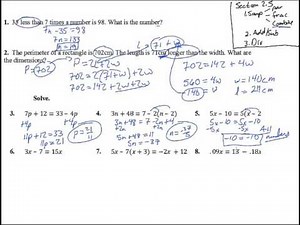 1. 35 less than 7 times a number is 98. What is the number?
7n - 35 = 98
7n = 133
n = 19
2. The perimeter of a rectangle is 702cm. The length is 71cm longer than the width. What are
the dimensions?
P = 2l + 2w
702 = 2(71+w) + 2w
702 = 142 + 2w + 2w
702 = 142 + 4w
560 = 4w
w = 140cm
l = 211cm
Section 2.5
2. Add
3. Dis
Solve.
3. 7p + 12 = 33 - 4p
+4p +4p
11p + 12 = 33
11p = 21
4. 3n + 48 = 7 - 2(n - 2)
3n + 48 = 7 - 2n + 4
5n + 48 = 11
5n = -37
n = -37/5
5. 5x - 10 = 5(x - 2
5x - 10 = 5x - 10
-5x -5x
-10 = -10
All
numbers
6. 3x - 7 = 15x
7. 5x - 7(x + 3) = -2x + 12
8. .09x = 13 - .18x